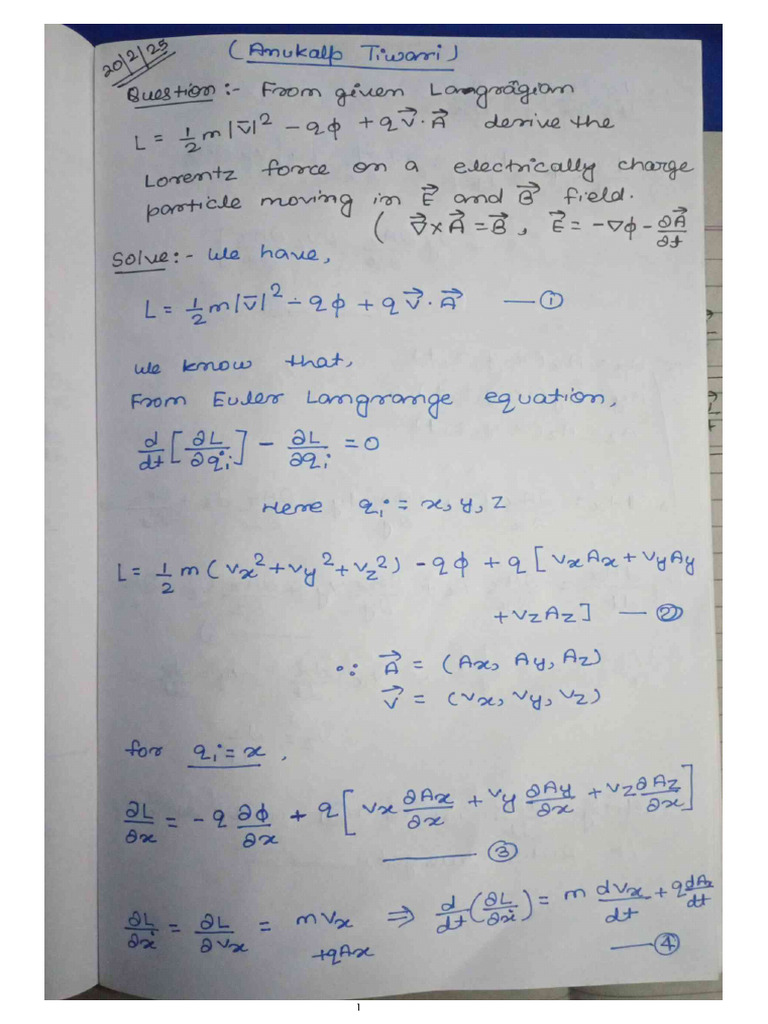 20/2/25
(Anukalp Tiwari)
Question:- From given Langrāgian
L = 1/2 m|v̄|² - qϕ + qv⃗·A⃗ derive the
Lorentz force on a electrically charge
particle moving in E⃗ and B⃗ field.
( ∇⃗×A⃗ = B⃗, E⃗ = -∇ϕ - ∂A⃗/∂t
Solve:- We have,
L = 1/2 m|v̄|² - qϕ + qv⃗·A⃗ —①
We know that,
From Euler Langrange equation,
d/dt[∂L/∂q̇i] - ∂L/∂qi = 0
Here qi = x, y, z
L = 1/2 m(vx² + vy² + vz²) - qϕ + q[vxAx + vyAy
+ vzAz] —②
∵ A⃗ = (Ax, Ay, Az)
v⃗ = (vx, vy, vz)
for qi = x,
∂L/∂x = -q ∂ϕ/∂x + q[vx ∂Ax/∂x + vy ∂Ay/∂x + vz ∂Az/∂x]
—③
∂L/∂ẋ = ∂L/∂vx = mvx + qAx ⇒ d/dt(∂L/∂ẋ) = m dvx/dt + q dAx/dt
—④
1